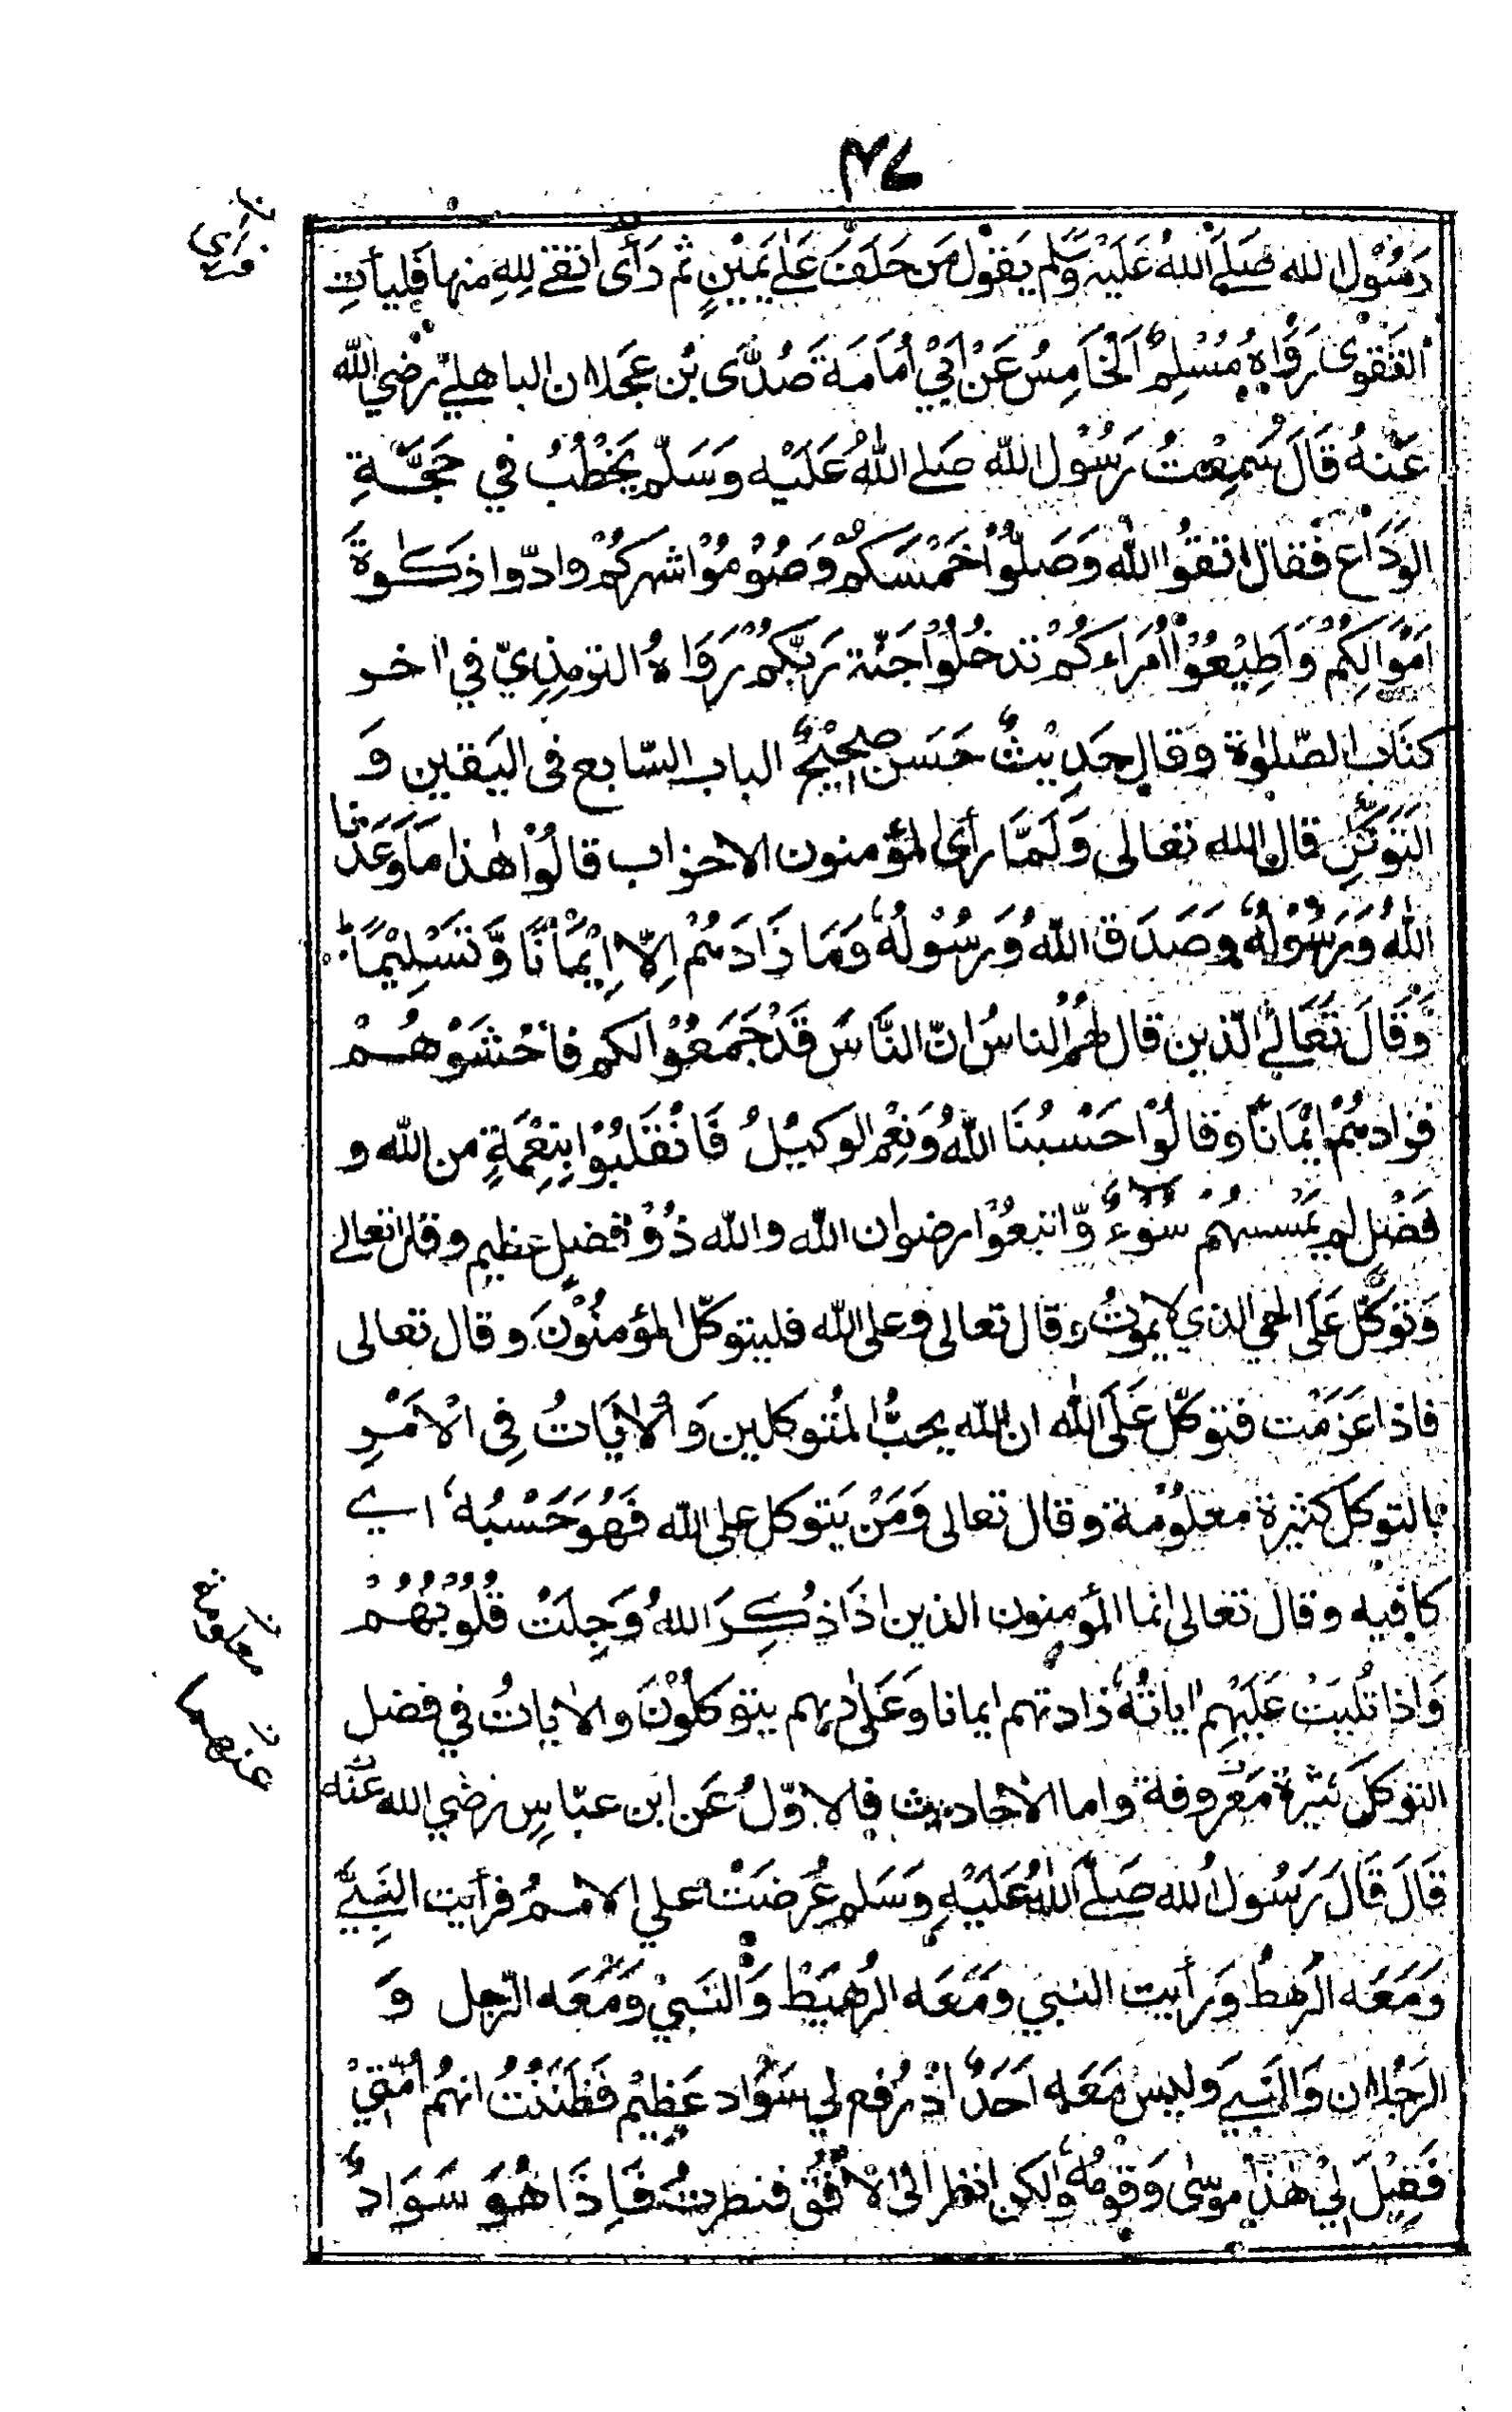 ٤٧
رَسُوْل الله صَلَے اللهُ عَلَيْہ وَسَّلم يَقوْل مَن حَلَفَ عَلٰے يَمِيْنٍ ثم رَأى اتقے لِلهِ منها فَليأتِ
التقوى رَوَاهُ مُسْلِمٌ اَلخَامِسُ عَنْ اَبِيْ اُمَامَة صُدَّى بْن عجلان الباهليّ رضي الله
عَنْهُ قَالَ سَمِعْتُ رَسُوْل اللّٰه صَلے اللهُ عَلَيْه وَسَلّم يَخْطُبُ في حَجَّةِ
الوَدَاعِ فقال اتقُوا اللّٰه وَصَلُّوْا خَمْسَكُمْ وَصُوْمُوْا شهركُمْ وادّوا زكٰوةَ
اَمْوَالِكُمْ وَاَطِيْعُوْا اُمَرَاءكُمْ تدخُلُوْا جَنّة رَبّكُمْ رَوَاهُ الترمذِيّ في اخر
كتَاب الصّلوٰة وقال حَدِيْثٌ حَسَن صَحِيْحٌ الباب السّابع فى اليَقين وَ
التَوَكّلِ قال الله تعالى وَلَمَّا رأى المؤمنون الاحزاب قالُوْا هٰذا مَا وَعَدَنا
اللهُ وَرَسُوْلُهٗ وَصَدَق اللهُ وَرسُوْلُهٗ وَمَا زَادَهُمْ اِلّا اِيْمَانًا وَّتَسْلِيْمًا
وَقَالَ تَعَالٰے الّذين قال لهُمُ الناسُ انّ النَّاسَ قَدْ جَمَعُوْا لكم فاخْشَوْهُـمْ
فزادهُمْ ايْمَانًا وقالُوْا حَسْبُنَا اللّٰهُ وَنِعْم الوكيْلُ فَانْقَلَبُوْا بِنِعْمَةٍ من اللّٰه و
فَضْل لم يَمْسسهُمْ سُوْءٌ وّاتبعُوْا رضوان اللّٰه واللّٰه ذُوْ فضلٍ عظيم وقال تعالے
وَتوَكّل عَلَى الحي الذي لايموتُ وقال تعالى وعلى اللّٰه فليتوكّل المؤمنُوْنَ وقال تعالى
فاذا عَزَمْت فتوكّل عَلَى اللّٰه ان اللّٰه يحبُّ المُتوكلين وَالاٰيَاتُ فِى الْاَمْرِ
بالتوكل كثيرة معلُوْمة وقال تعالى وَمَنْ يَتوكل على اللّٰه فَهُوَ حَسْبُهٗ اے
كافيه وقال تعالى انما المؤمنون الذين اذَا ذُكِرَ اللهُ وَجِلَتْ قُلُوْبُهُمْ
وَاذا تُلِيَتْ عَلَيْهِم اٰياتُهٗ زادتهم ايمانا وَعَلٰى ربهم يتوكلُوْنَ والاٰياتُ في فضل
التوكل كَثيرة مَعْروفة واما الاحاديث فالاوّلُ عَن ابن عبّاسٍ رضي الله عَنْه
قَالَ قَالَ رَسُولُ الله صَلّے اللهُ عَلَيْهِ وَسَلم عُرضَتْ علي الامـمُ فرأيت النَبِيَّ
وَمَعَه الرّهطُ وَرأيت النبي وَمَعَه الرُهَيْطُ وَالنَبيْ وَمَعَه الرّجل وَ
الرَجُلان وَالنَبيَ وليسْ مَعَه اَحَدٌ اذْ رُفع لي سَوَاد عَظِيْم فَظَنَنْتُ انهُم اُمّتيْ
فَقِيْلَ لِيْ هٰذا موسٰى وَقومُهٗ ولكن انظر الى الْاُفُق فنظرتُ فَاِذَا هُوَ سَوَادٌ
معلومة
عنهما